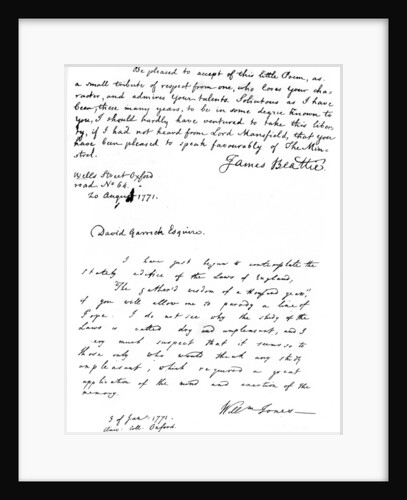 Be pleased to accept of this little Poem, as
a small tribute of respect from one, who loves your cha-
racter, and admires your talents. Solicitous as I have
been, these many years, to be in some degree known to
you, I should hardly have ventured to take this liber-
ty, if I had not heard from Lord Mansfield, that you
have been pleased to speak favourably of The Min-
strel.
James Beattie.
Wells Street Oxford
road No 64.
20 August 1771.
David Garrick Esquire.
I have just begun to contemplate the
stately edifice of the Laws of England,
"The gather'd wisdom of a thousand years,"
if you will allow me to parody a line of
Pope. I do not see why the study of the
Laws is called dry and unpleasant, and I
very much suspect that it seems so to
those only who would think any study
unpleasant, which required a great
application of the mind and exertion of the
memory.
Will m Jones
3 of Jany 1771.
Univ: Coll. Oxford.